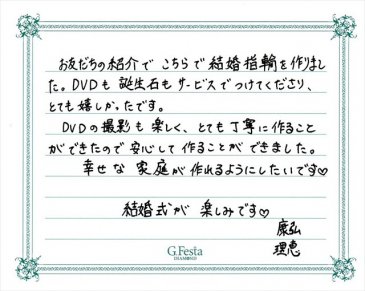 お友だちの紹介で こちらで 結婚指輪を作りまし
た。DVDも 誕生石も サービスでつけてくださり、
とても嬉しかったです。
DVDの撮影も 楽しく、とても丁寧に作ること
ができたので 安心して 作ることが できました。
幸せな 家庭が 作れるようにしたいです♡
結婚式が 楽しみです♡
康弘
理恵
G.Festa
DIAMOND